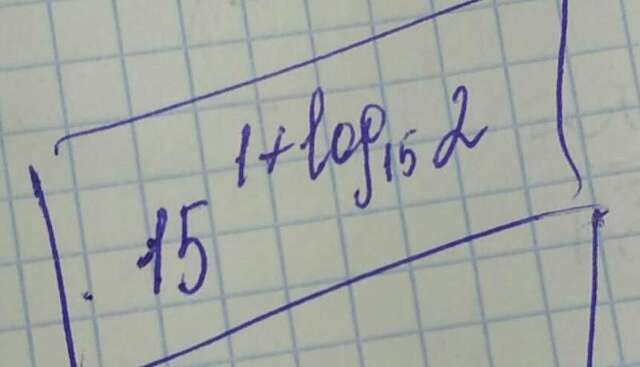 15^{1+log_{15} 2}